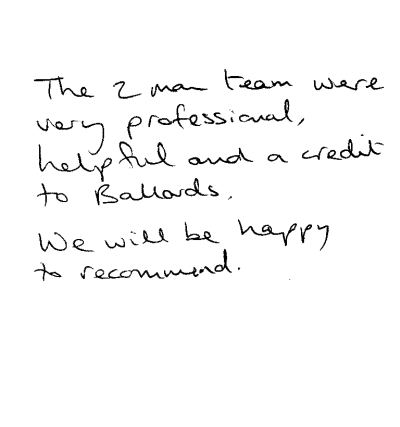 The 2 man team were
very professional,
helpful and a credit
to Ballards.
We will be happy
to recommend.